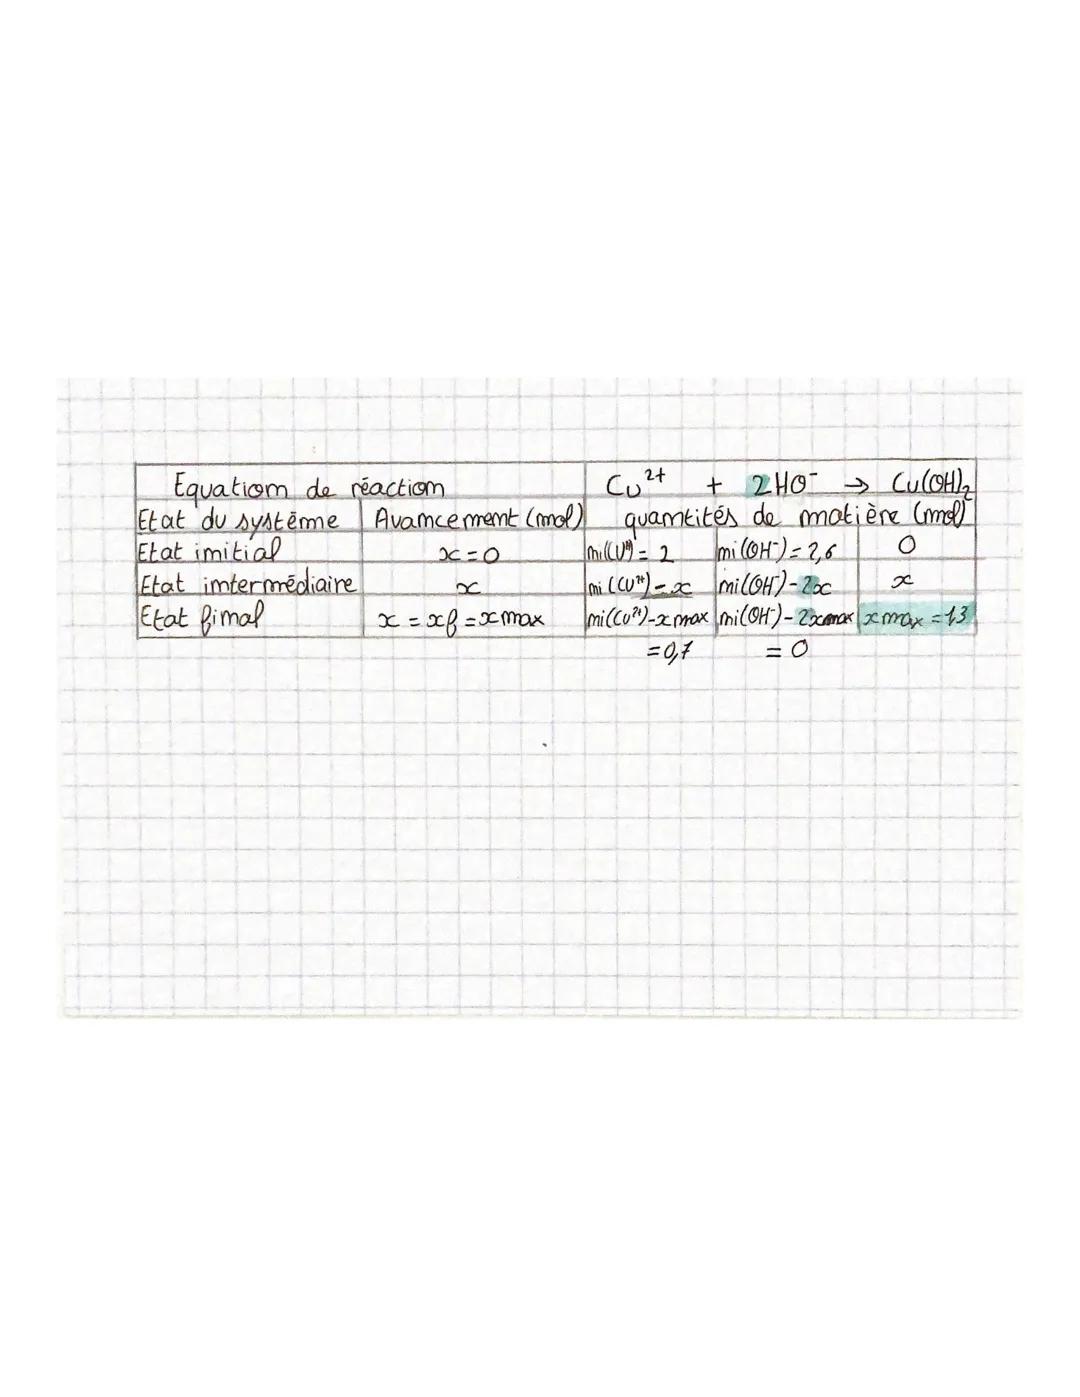 Equation de réaction Cu²⁺ + 2HO⁻ → Cu(OH)₂
Etat du système Avancement (mol) quantités de matière (mol)
Etat initial x = 0 ni(Cu²⁺) = 2 ni(OH⁻) = 2,6 0
Etat intermédiaire x ni(Cu²⁺) - x ni(OH⁻) - 2x x
Etat final x = xf = xmax ni(Cu²⁺) - xmax ni(OH⁻) - 2xmax xmax = 1,3
= 0,7 = 0